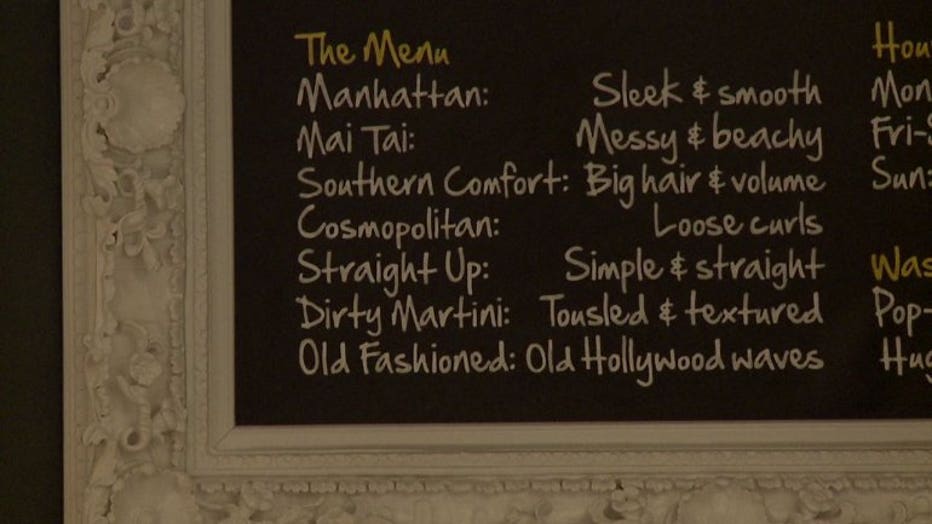 The Menu
Manhattan: Sleek & smooth
Mai Tai: Messy & beachy
Southern Comfort: Big hair & volume
Cosmopolitan: Loose curls
Straight Up: Simple & straight
Dirty Martini: Tousled & textured
Old Fashioned: Old Hollywood waves
Hou
Mon
Fri-S
Sun:
Was
Pop-
Hug